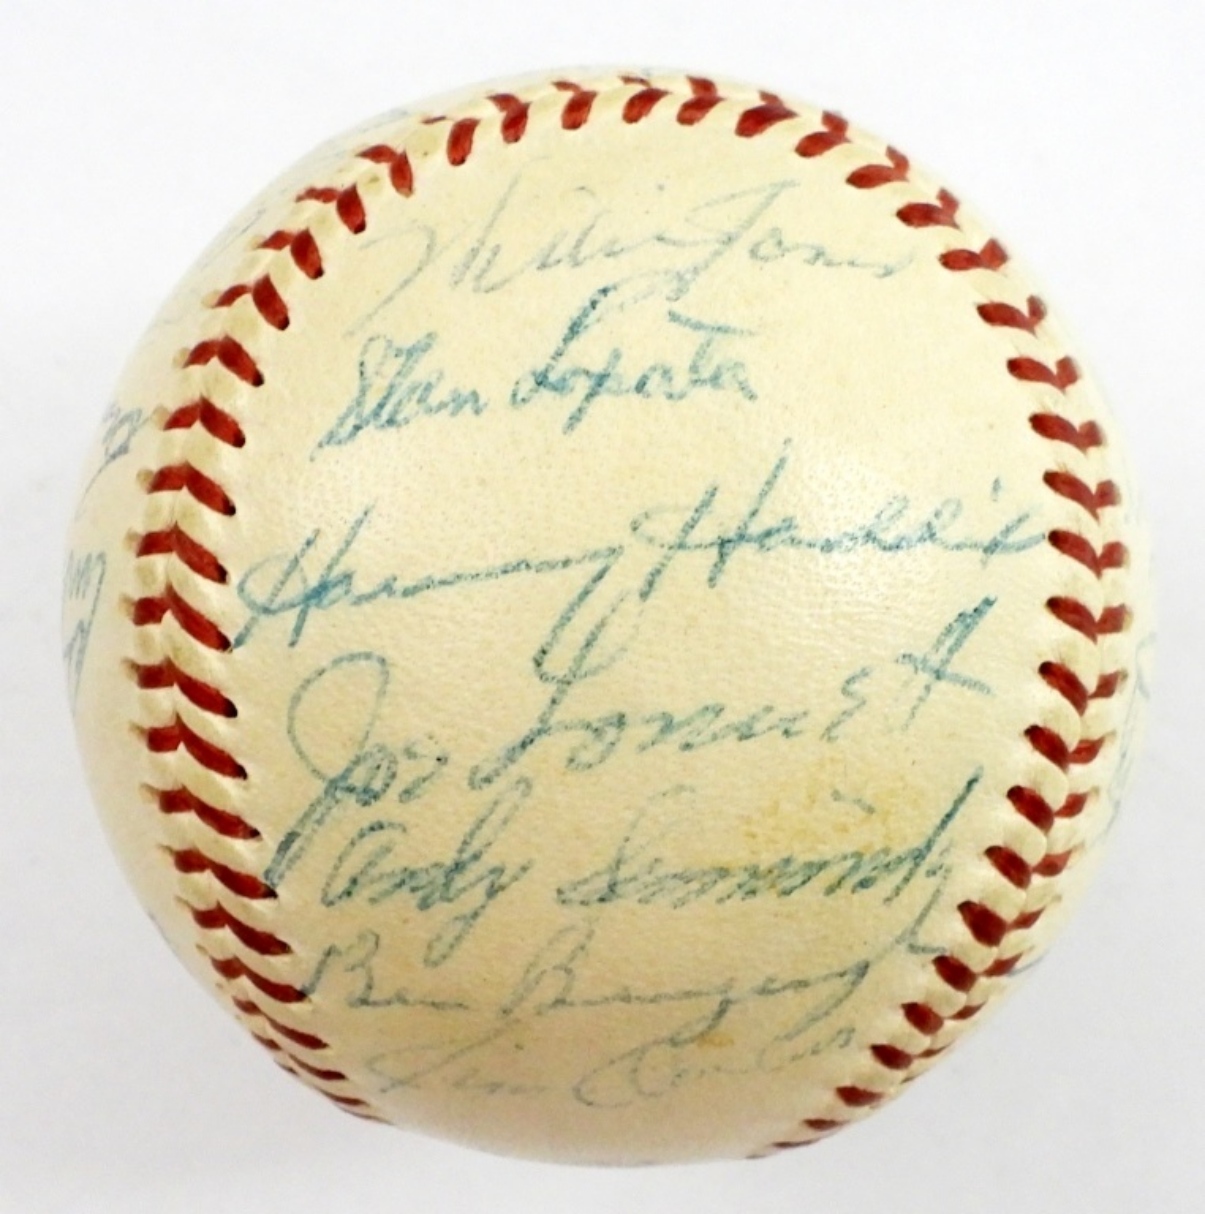 Willie Jones
Stan Lopata
Harvey Haddix
Joe Lonnett
Andy Seminick
Ben
Jim